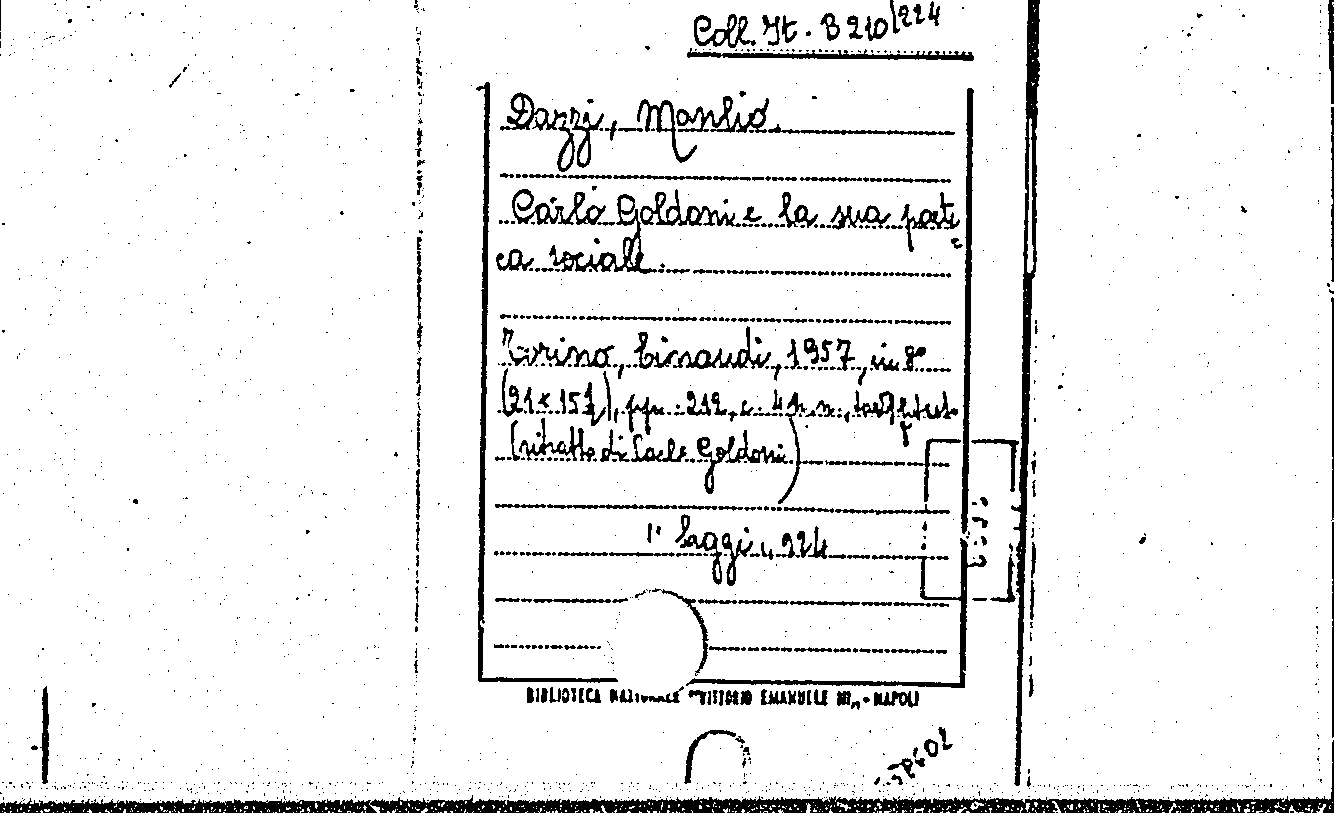 Coll. It. B 210/224
Dazzi, Manlio.
Carlo Goldoni e la sua poeti
ca sociale.
Torino, Einaudi, 1957, in 8°
(21 x 15½), pp. 212, c. 4 n. n., tav.
(ritratto di Carlo Goldoni)
Saggi, 224
BIBLIOTECA NAZIONALE "VITTORIO EMANUELE III" - NAPOLI